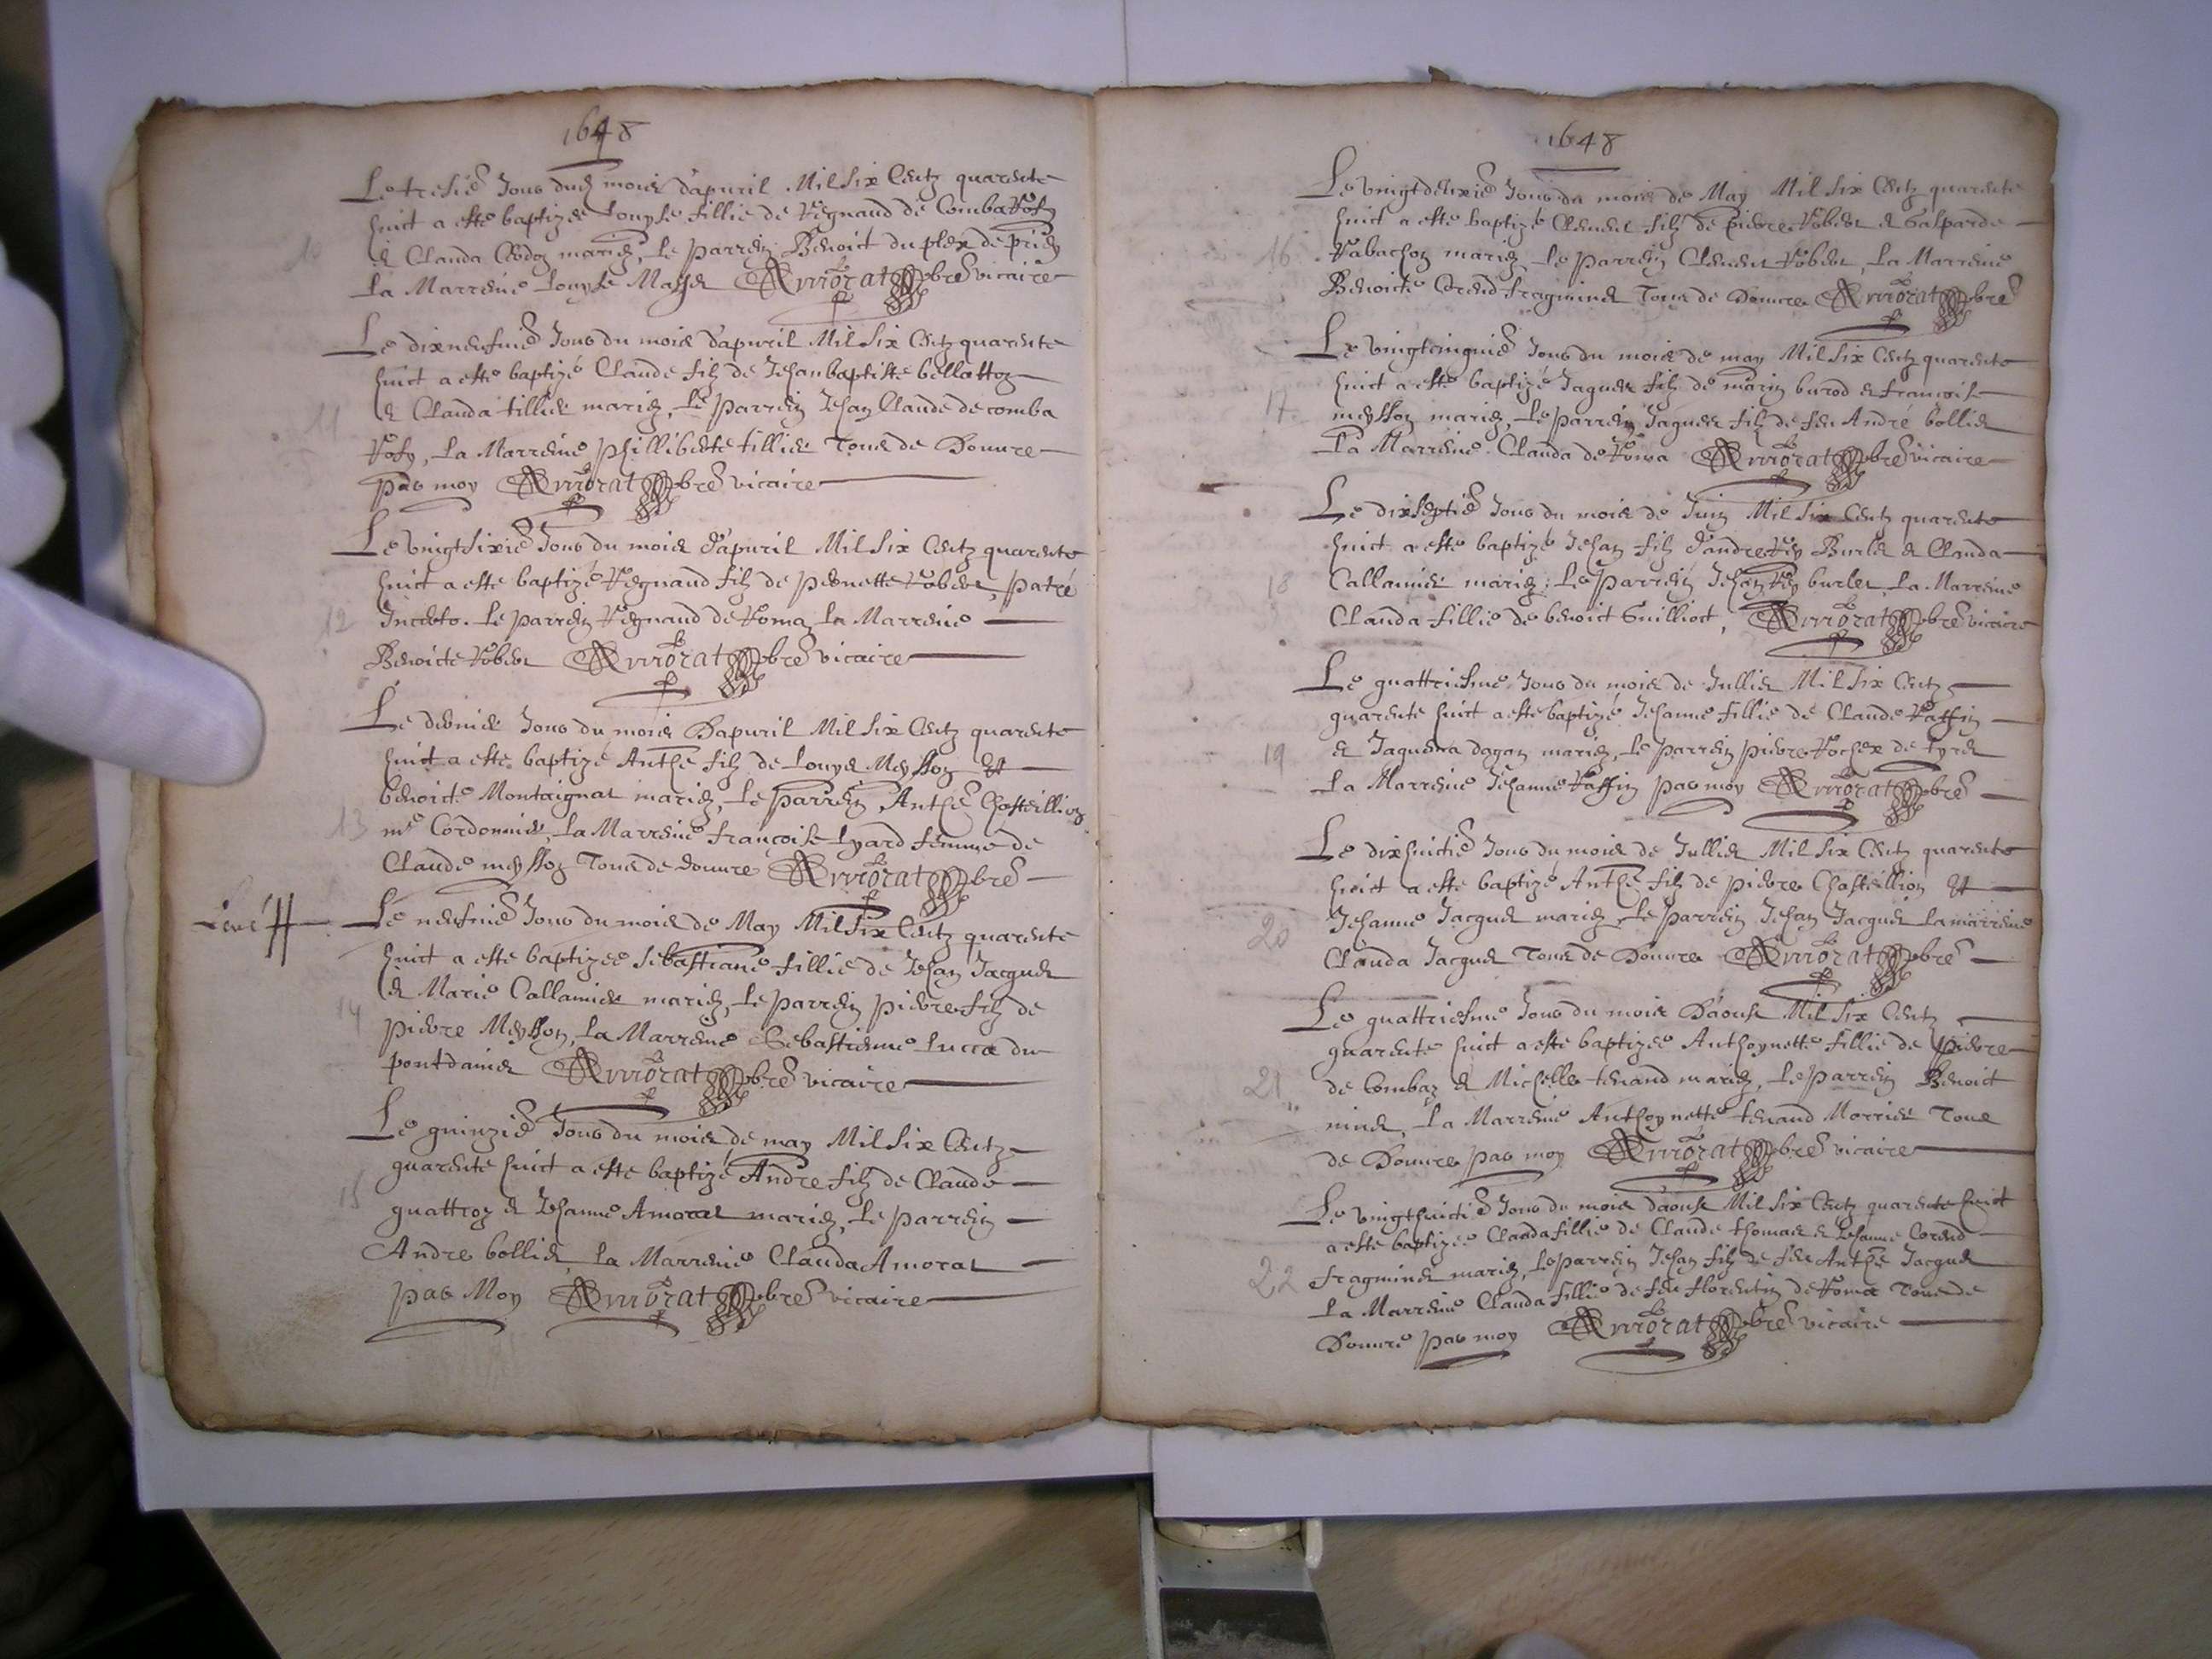 1648
Le tresie Jour dud mois d'apuril Mil six Centz quarente
huict a esté baptizée Louyse fillie de Regnaud de Comba
& Clauda mariez, Le parrein Benoict du plex de
La Marreine Louyse vicaire
Le dixneufuie Jour du mois d'apuril Mil six Centz quarente
huict a esté baptizé Claude filz de Jehan baptiste bellatton
& Clauda tillier mariez, Le parrein Jehan Claude de comba
La Marreine Philliberte tillier Tous de Douure
par moy vicaire
Le vingtsixie Jour du mois d'apuril Mil six Centz quarente
huict a esté baptizé Regnaud filz de pernette Robert, patre
Incerto. Le parrein Regnaud de Roma, La Marreine
Benoicte Robert vicaire
Le dernier Jour du mois Dapuril Mil six Centz quarente
huict a esté baptizé Anthe filz de Louys Meysson Et
benoicte Montaignat mariez, Le parrein Anthe Chasteillion
me Cordonnier, La Marreine françoise Lyard femme de
Claude meysson Tous de douure
Leué
Le neufuie Jour du mois de May Mil six Centz quarente
huict a esté baptizée sebastiane fillie de Jehan Jacquet
& Marie Callamier mariez, Le parrein pierre filz de
pierre Meysson, La Marreine Sebastienne Lucca du
pontdains vicaire
Le quinzie Jour du mois de may Mil six Centz
quarente huict a esté baptizé Andre filz de Claude
quattroz & Jehanne Amorat mariez, Le parrein
Andre bollier La Marreine Clauda Amorat
par Moy vicaire
10
11
12
13
14
15
1648
Le vingtdeuxie Jour du mois de May Mil six Centz quarente
huict a esté baptizé Clement filz de pierre Robert & Gasparde
Rabachon mariez, Le parrein Clement Robert, La Marreine
Benoicte Tous de Douure
Le vingtcinquie Jour du mois de may Mil six Centz quarente
huict a esté baptizé Jaques filz de marin burod & francoise
meysson mariez, Le parrein Jaques filz de feu André bollier
La Marreine Clauda de Roma vicaire
Le dixseptie Jour du mois de Juin Mil six Centz quarente
huict a esté baptizé Jehan filz d'andre Rey Burlet & Clauda
Callamier mariez, Le parrein Jehan Rey burlet, La Marreine
Clauda fillie de benoict Guilliot, vicaire
Le quattriesme Jour du mois de Jullier Mil six Centz
quarente huict a esté baptizé Jehanne fillie de Claude Raffin
& Jaquema dagan mariez, Le parrein pierre Rochex de
La Marreine Jehanne Raffin par moy
Le dixhuictie Jour du mois de Jullier Mil six Centz quarente
huict a esté baptizé Anthe filz de pierre Chasteillion Et
Jehanne Jacquet mariez, Le parrein Jehan Jacquet La marreine
Clauda Jacquet Tous de Douure
Le quattriesme Jour du mois Daoust Mil six Centz
quarente huict a esté baptizée Anthoynette fillie de pierre
de Combaz & Michelle tenand mariez, Le parrein Benoict
ninet, La Marreine Anthoynette tenand Morrier Tous
de Douure par moy vicaire
Le vingthuictie Jour du mois daoust Mil six Centz quarente huict
a esté baptizée Clauda fillie de Claude thomas & Jehanne
mariez, Le parrein Jehan filz de feu Anthe Jacquet
La Marreine Clauda fillie de feu florentin de Roma Tous de
Douure par moy vicaire
16
17
18
19
20
21
22